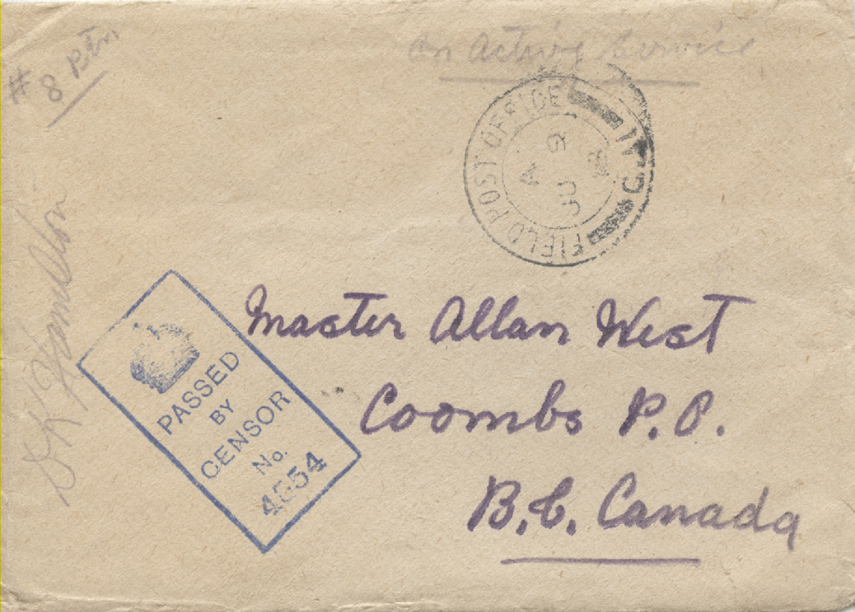 # 8 Rtn.
On Active Service
FIELD POST OFFICE
Master Allan West
Coombs P.O.
B.C. Canada
PASSED
BY
CENSOR
No.
4654
D K Hamilton